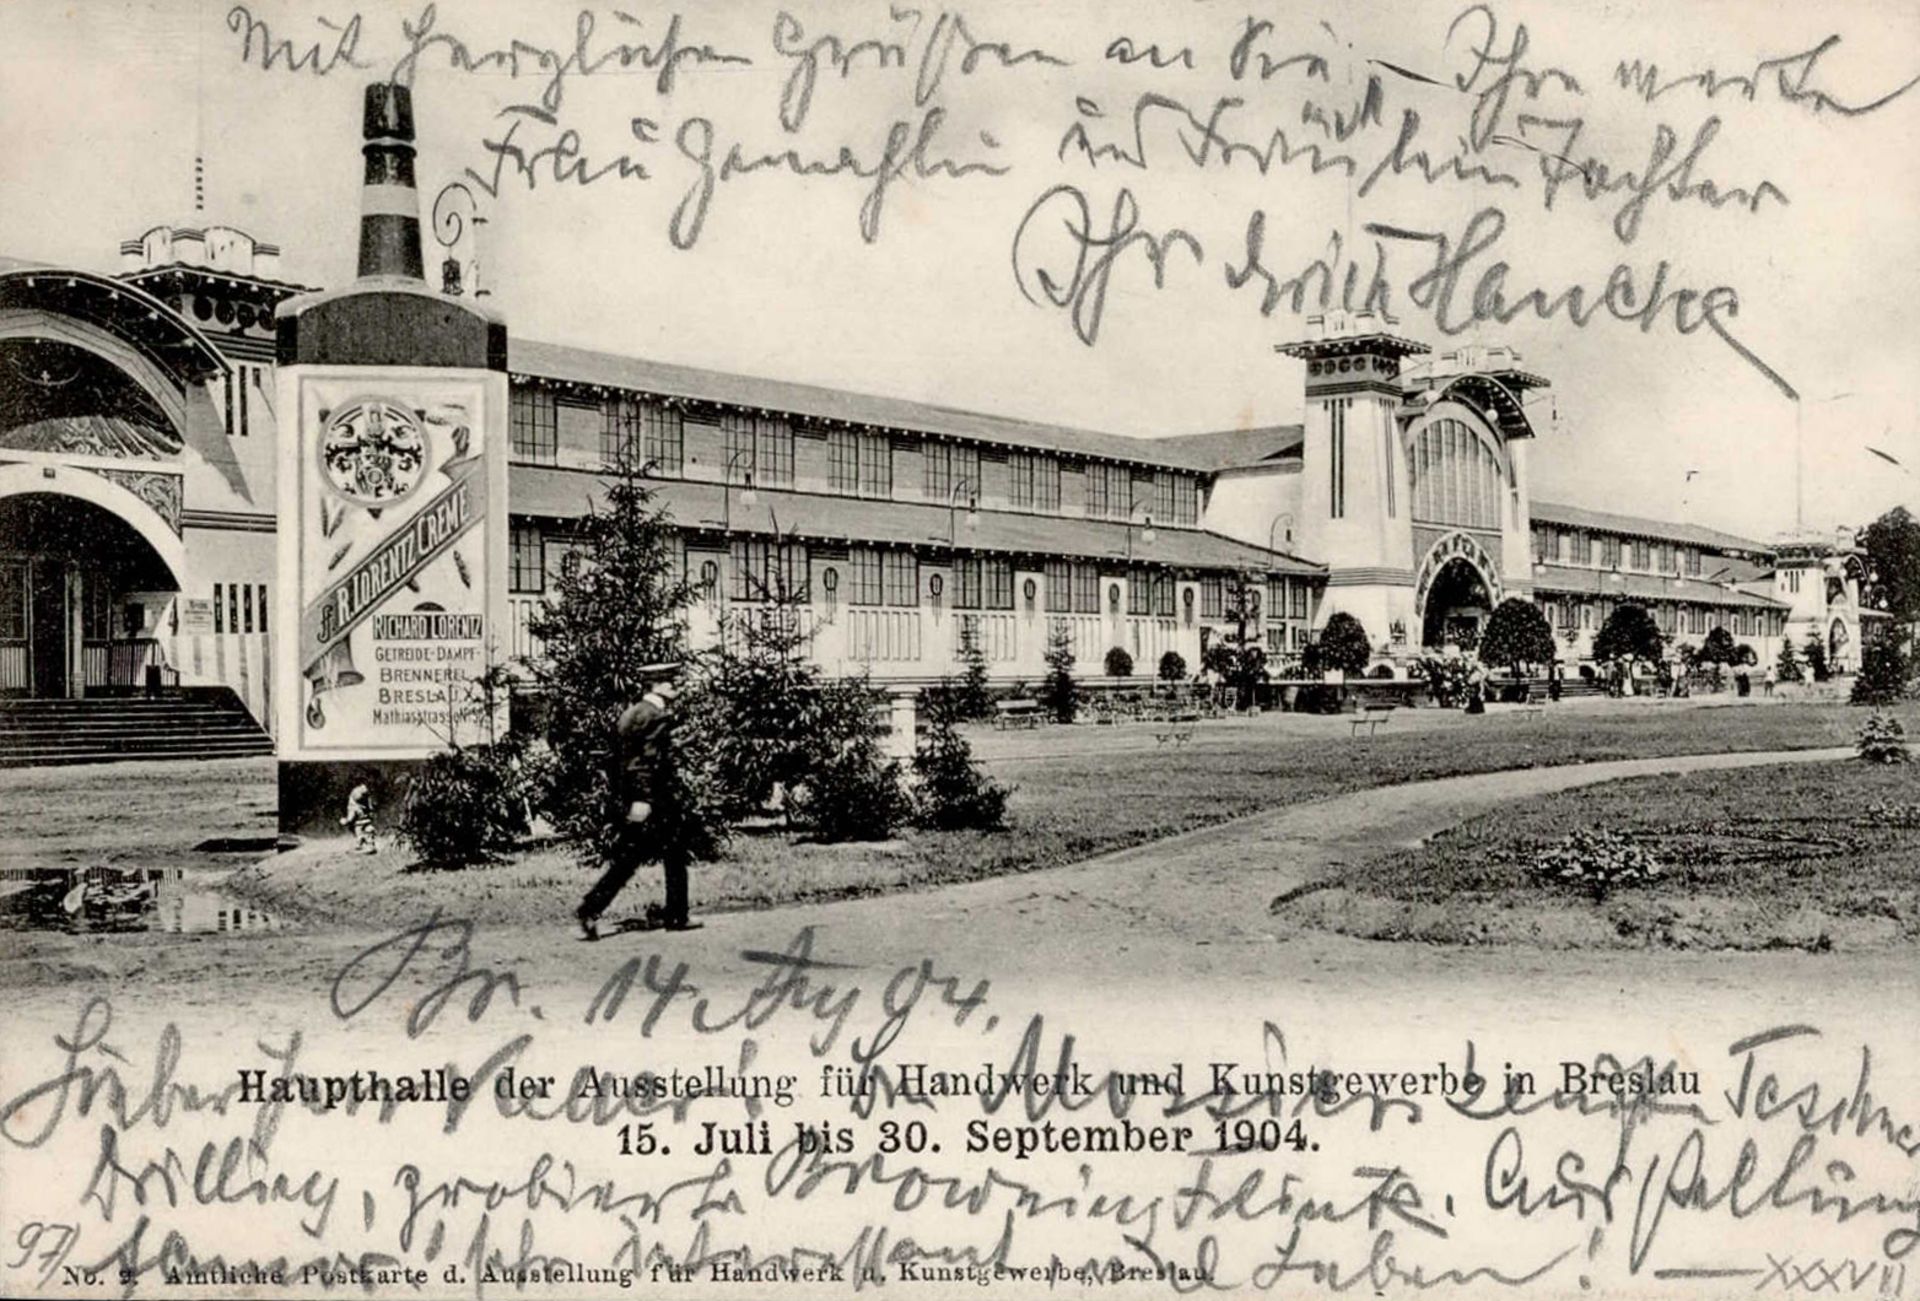 Mit herzlichen Grüßen an Sie, Ihre werte
Frau Gemahlin und Fräulein Tochter
Ihr Hancke
J. R. LORENTZ CREME
RICHARD LORENTZ
GETREIDE-DAMPF-
BRENNEREI
BRESLAU X.
Mathiasstrasse
Br. 14. Aug 04.
Lieber Herr
Haupthalle der Ausstellung für Handwerk und Kunstgewerbe in Breslau
15. Juli bis 30. September 1904.
Drilling, probierte Browning Flinte. Ausstellung
sehr interessant und Leben! — XXXVII
97/
No. 2. Amtliche Postkarte d. Ausstellung für Handwerk u. Kunstgewerbe, Breslau.